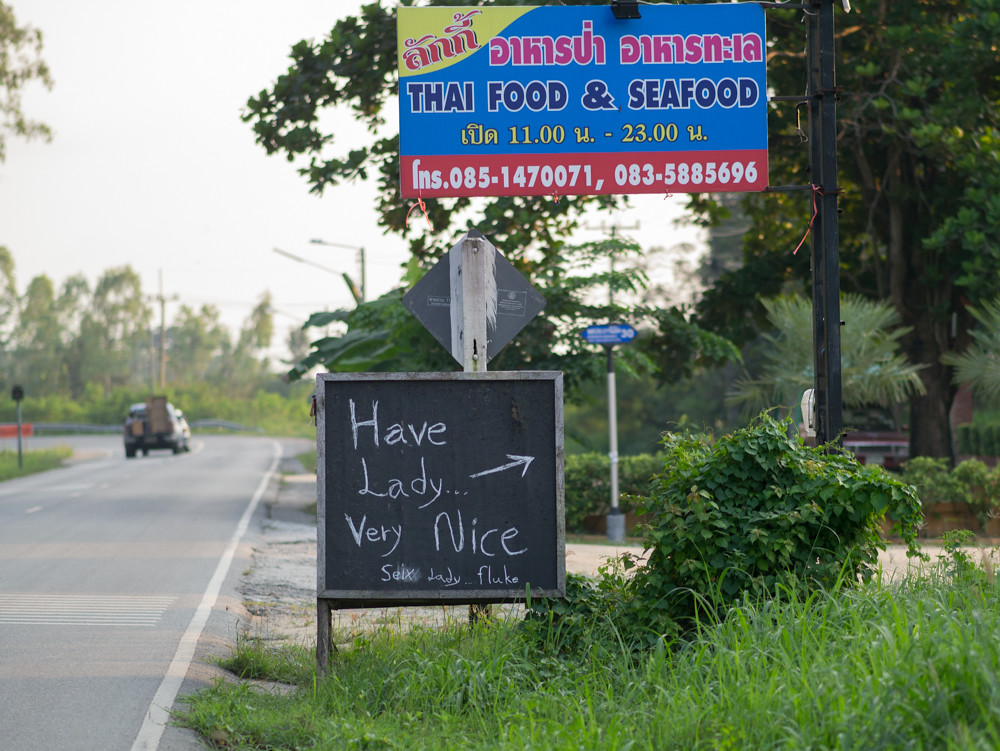 ลักกี้
อาหารป่า อาหารทะเล
THAI FOOD & SEAFOOD
เปิด 11.00 น. - 23.00 น.
โทร.085-1470071, 083-5885696
30
Have
Lady...
Very Nice
Seix Lady.. fluke